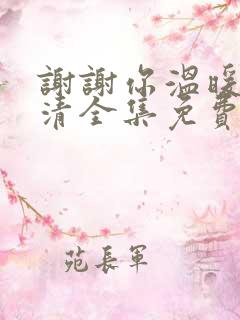 謝謝你溫暖
清全集免費
苑長軍